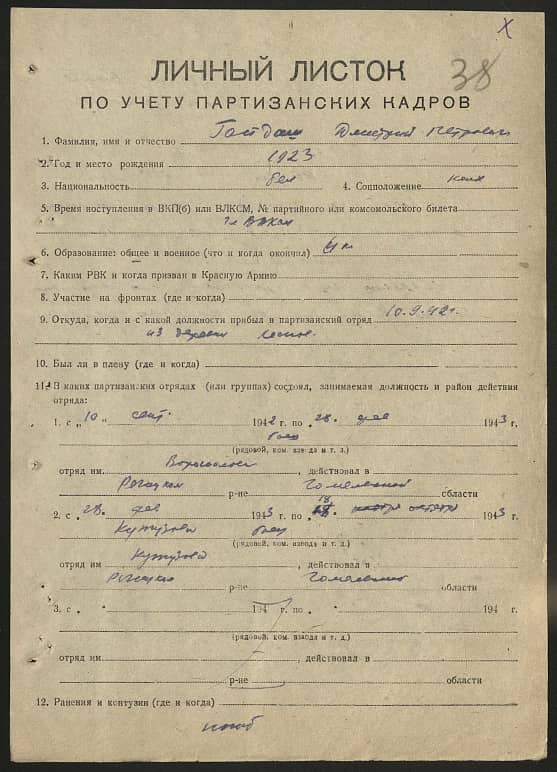 X
38
ЛИЧНЫЙ ЛИСТОК
ПО УЧЕТУ ПАРТИЗАНСКИХ КАДРОВ
1. Фамилия, имя и отчество Гайдаш Дмитрий Петрович
2. Год и место рождения 1923
3. Национальность бел 4. Соцположение колх
5. Время поступления в ВКП(б) или ВЛКСМ, № партийного или комсомольского билета
чл ВЛКСМ
6. Образование: общее и военное (что и когда окончил) 4 кл
7. Каким РВК и когда призван в Красную Армию
8. Участие на фронтах (где и когда)
9. Откуда, когда и с какой должности прибыл в партизанский отряд 10.9.42г.
из деревни
10. Был ли в плену (где и когда)
11. В каких партизанских отрядах (или группах) состоял, занимаемая должность и район действия
отряда:
1. с „10 „ сент. 1942 г. по „28. фев 1943 г.
боец
(рядовой, ком. взвода и т. д.)
отряд им. Ворошилова, действовал в
Рогачком р-не Гомельской области
2. с „28. фев 1943 г. по „18 октября 1943 г.
Кутузова боец
(рядовой, ком. взвода и т. д.)
отряд им Кутузова, действовал в
Рогачком р-не Гомельской области
3. с „ „ 194 г. по „ „ 194 г.
(рядовой, ком. взвода и т. д.)
отряд им., действовал в
р-не области
12. Ранения и контузии (где и когда)
погиб